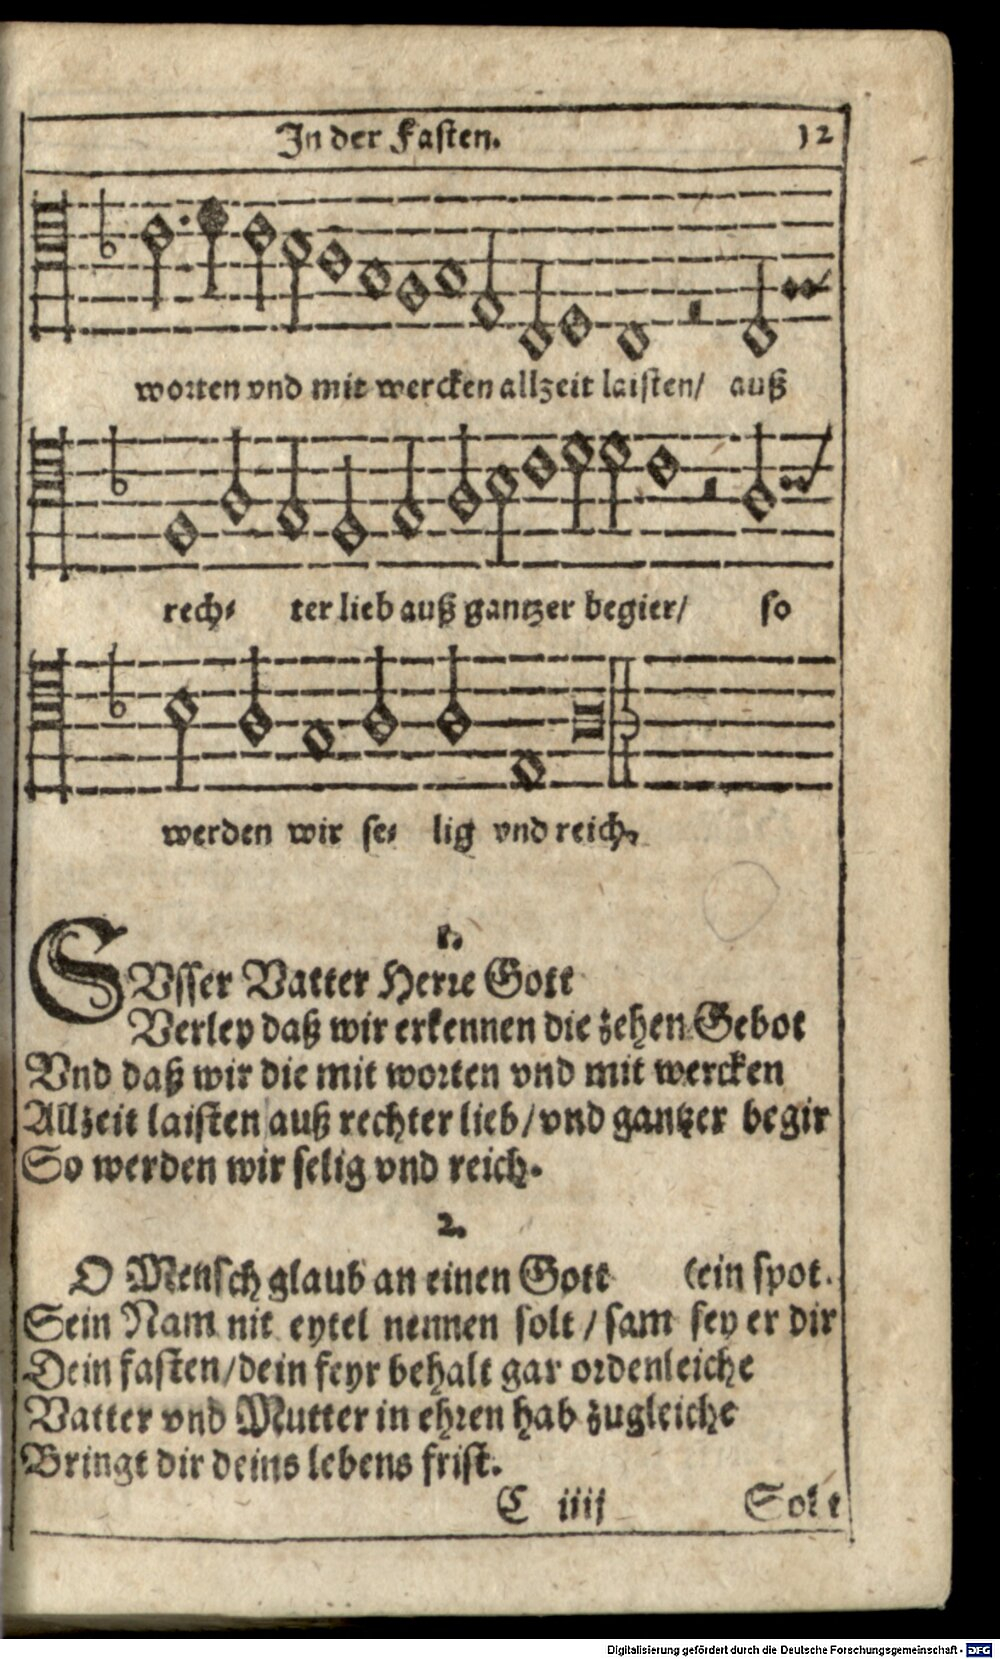 In der Fasten. 12
worten vnd mit wercken allzeit laisten/ auß
rech⸗ ter lieb auß gantzer begier/ so
werden wir se⸗ lig vnd reich.
1.
SVsser Vatter Herre Gott
Verley daß wir erkennen die zehen Gebot
Vnd daß wir die mit worten vnd mit wercken
Allzeit laisten auß rechter lieb/vnd gantzer begir
So werden wir selig vnd reich.
2.
O Mensch glaub an einen Gott (ein spot.
Sein Nam nit eytel nennen solt / sam sey er dir
Dein fasten/dein feyr behalt gar ordenleiche
Vatter vnd Mutter in ehren hab zugleiche
Bringt dir deins lebens frist.
C iiij Solt
Digitalisierung gefördert durch die Deutsche Forschungsgemeinschaft - DFG